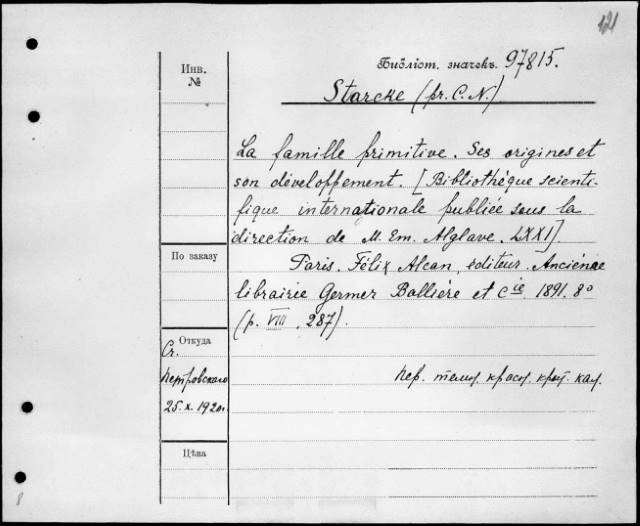 121
Библіот. значекъ. 97815.
Starcke (pr. C. N.)
Инв.
№
La famille primitive. Ses origines et
son développement. [Bibliothéque scienti-
fique internationale publiée sous la
direction de M. Em. Alglave. LXXI].
По заказу
Paris. Félix Alcan, éditeur. Anciénne
librairie Germer Ballière et Cie. 1891. 8º
(p. VIII, 287).
Откуда
Ст.
Петровскаго
25. X. 1920г.
пер.
Цѣна
8